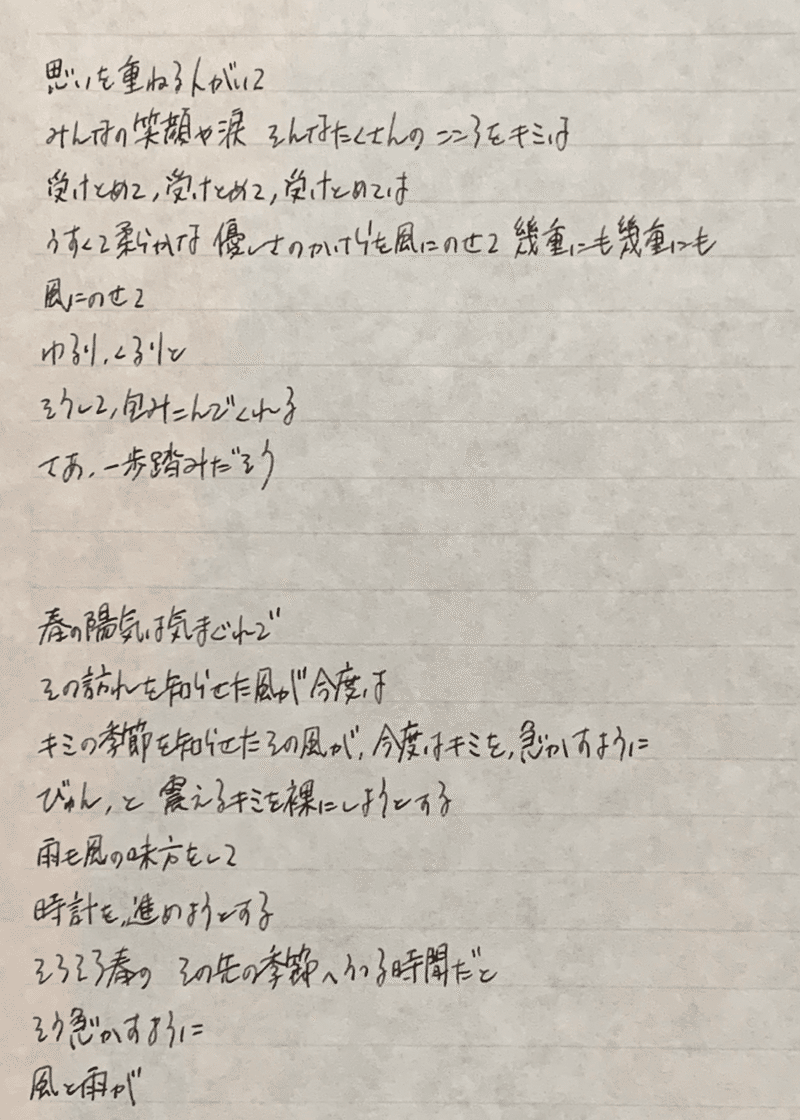 思いを重ねる人がいて
みんなの笑顔や涙 そんなたくさんの、こころをキミは
受けとめて、受けとめて、受けとめては
うすくて柔らかな 優しさのかけらを風にのせて 幾重にも幾重にも
風にのせて
ゆるり、くるりと
そうして、包みこんでくれる
さあ、一歩踏みだそう
春の陽気は気まぐれで
その訪れを知らせた風が今度は
キミの季節を知らせたその風が、今度はキミを、急かすように
びゅん、と 震えるキミを裸にしようとする
雨も風の味方をして
時計を、進めようとする
そろそろ春の その先の季節へうつる時間だと
そう急かすように
風と雨が